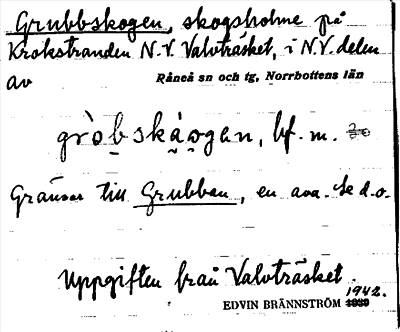 Grubbskogen, skogsholme på
Krokstranden N.V. Valvträsket, i N.V. delen
av Råneå sn och tg, Norrbottens län
gròb̥skå̀ogan, bf. m.
Gränsar till Grubban, en ava. Se d.o.
Uppgiften från Valvträsket.
1942.
EDVIN BRÄNNSTRÖM 1939